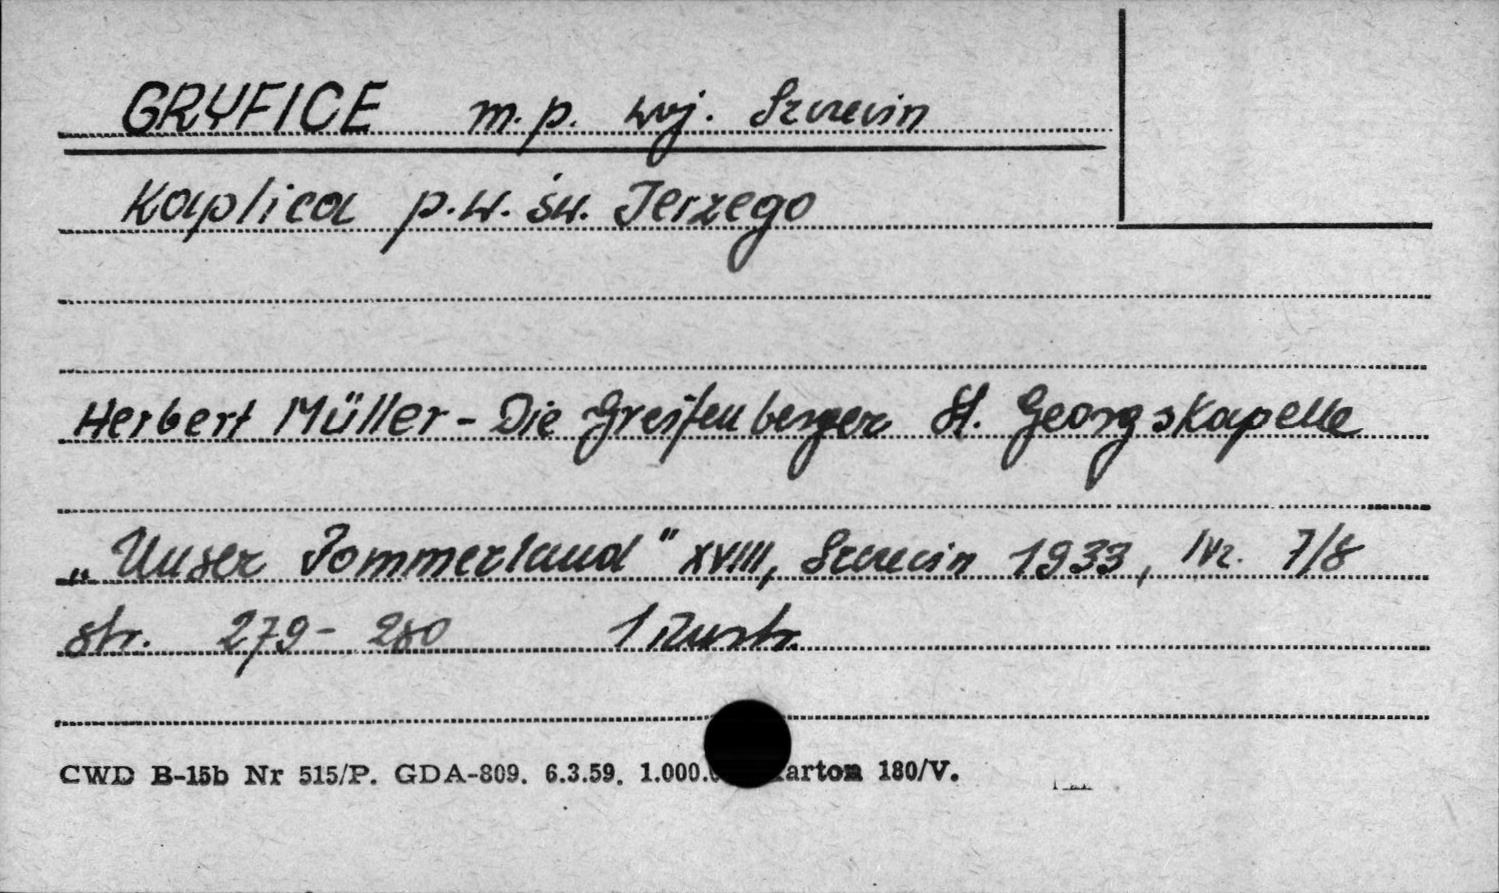 GRYFICE m.p. woj. Szczecin
Kaplica p.w. św. Jerzego
Herbert Müller - Die Greifenberger St. Georgskapelle
„Unser Pommerland" XVIII, Szczecin 1933, Nr. 7/8
str. 279 - 280 1 ilustr.
CWD B-15b Nr 515/P. GDA-809. 6.3.59. 1.000. arton 180/V.